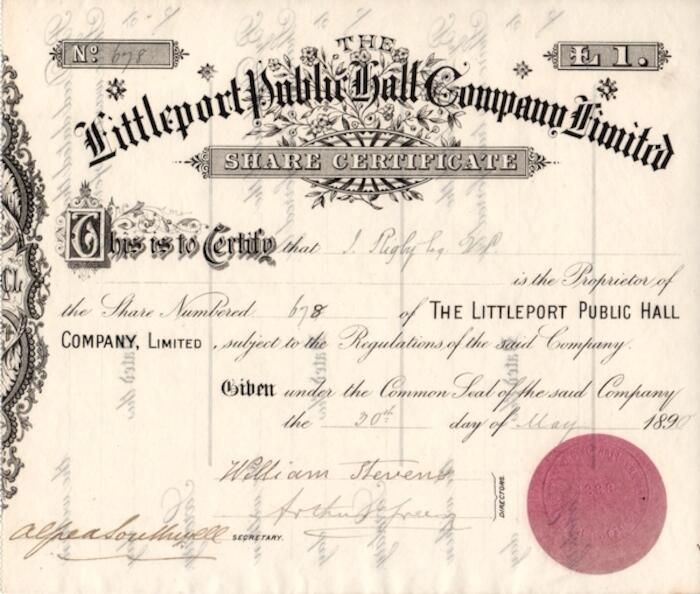 No. 678
£1.
THE
Littleport Public Hall Company Limited
SHARE CERTIFICATE
This is to Certify that J. Rigby Esq
is the Proprietor of
the Share Numbered 678 of THE LITTLEPORT PUBLIC HALL
COMPANY, LIMITED, subject to the Regulations of the said Company.
Given under the Common Seal of the said Company
the 30th day of May 189
William Stevens
DIRECTORS.
Arthur
SECRETARY.